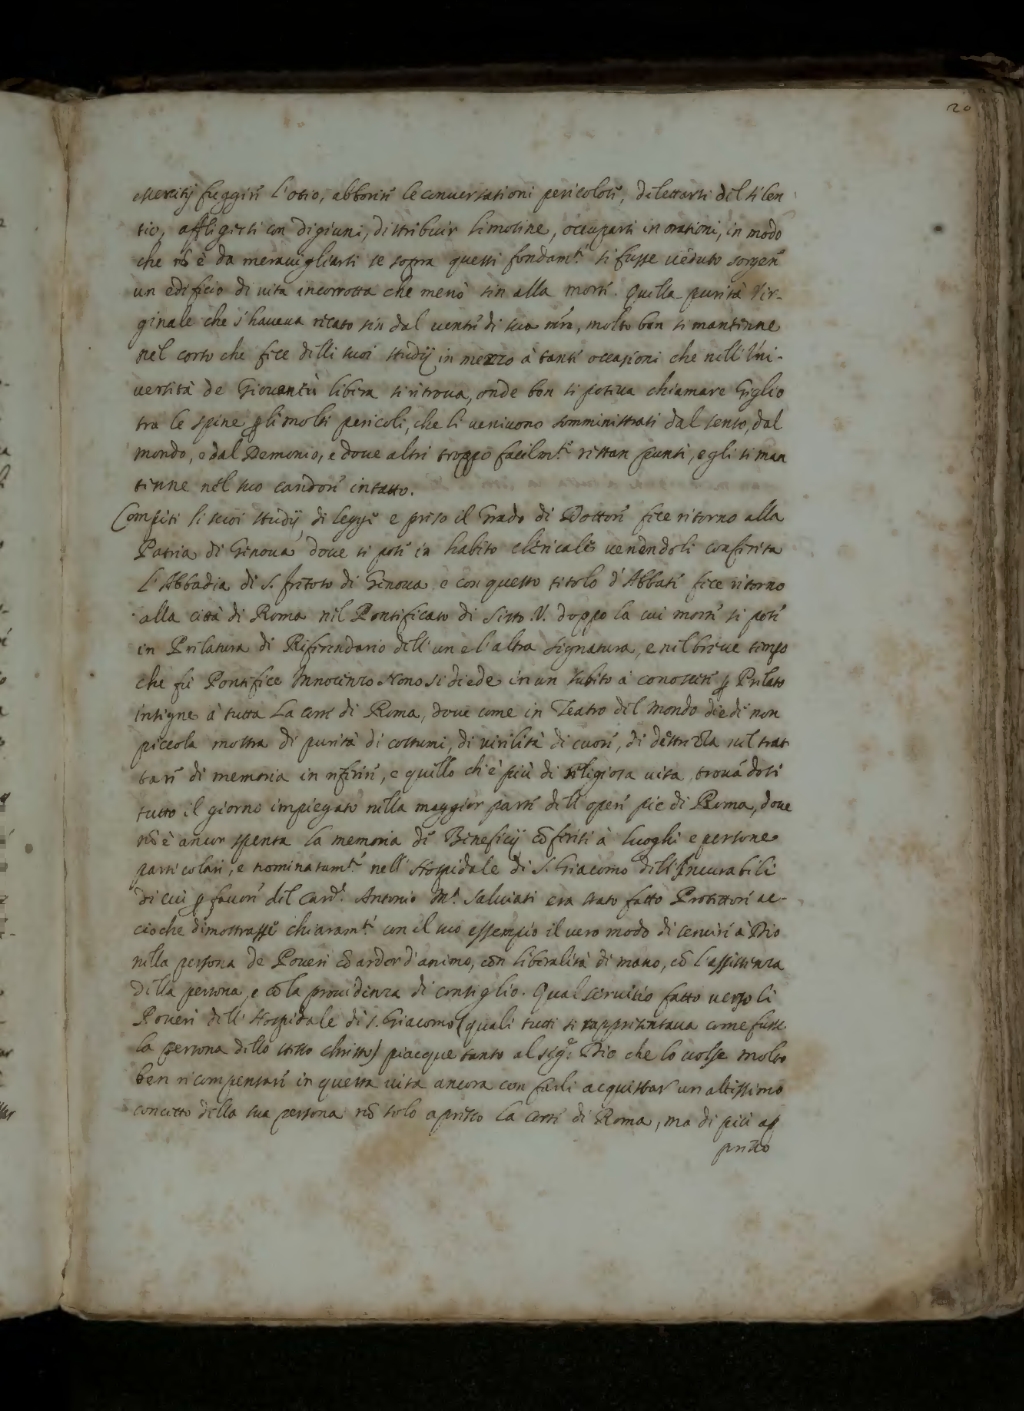 20
meriti fuggire l'otio, abborire le conversationi pericolose, dilettarsi del silen
tio, affligersi con digiuni, distribuir limosine, occuparsi in orationi, in modo
che nō è da meravigliarsi se sopra questi fondam.ti si fusse veduto sorgere
un edificio di vita incorrotta che menò sin alla morte. Quella purità Vir-
ginale che s'haveua recato sin dal ventre di sua mre, molto ben si mantenne
nel corso che fece delli suoi studij in mezzo à tante occasioni che nell'Uni-
versità de Gioventù libera si ritrova, onde ben si poteva chiamare Giglio
tra le spine ꝑ li molti pericoli, che li venivono somministrati dal senso, dal
mondo, e dal Demonio, e dove altri troppo facilm.te restan punti, egli si man
tenne nel suo candore intatto.
Compiti li suoi studij di legge e preso il Grado di Dottore fece ritorno alla
Patria di Genova, dove si pose in habito clericale venendoli conferita
l'Abbadia di S. fretoso di Genova e con questo titolo d'Abbate fece ritorno
alla città di Roma nel Pontificato di Sisto V. doppo la cui morte si pose
in Prelatura di Referendario dell'un e l'altra signatura, e nel breve tempo
che fù Pontefice Innocenzo Nono si diede in un subito à conoscere ꝑ Prelato
insigne à tutta La corte di Roma, dove come in Teatro del Mondo diede non
piccola mostra di purità di costumi, di virilità di cuore, di destrezza nel trat
tare di memoria in riferire, e quello ch'è più di religiosa vita, trovādosi
tutto il giorno impiegato nella maggior parte dell'opere pie di Roma, dove
nō è ancor spenta la memoria di Beneficij cōferiti à luoghi e persone
particolari, e nominatam.te nell'Hospidale di S. Giacomo dell'Incurabili
di cui ꝑ favore del Card.l Antonio M.a Salviati era stato fatto Protettore ac-
cioche dimostrasse chiaram.te con il suo essempio il vero modo di servire à Dio
nella persona de Poveri cō ardor d'animo, con liberalità di mano, cō l'assistenza
della persona, e cō la providenza di consiglio. Qual servitio fatto verso li
Poveri dell'Hospidale di S. Giacomo (quali tutti si rappresentava come fusse
la persona dello stesso christo) piacque tanto al sig.re Dio che lo volse molto
ben ricompensare in questa vita ancora con farli acquistar un altissimo
concetto della sua persona nō solo apresso la corte di Roma, ma di più ap
presso